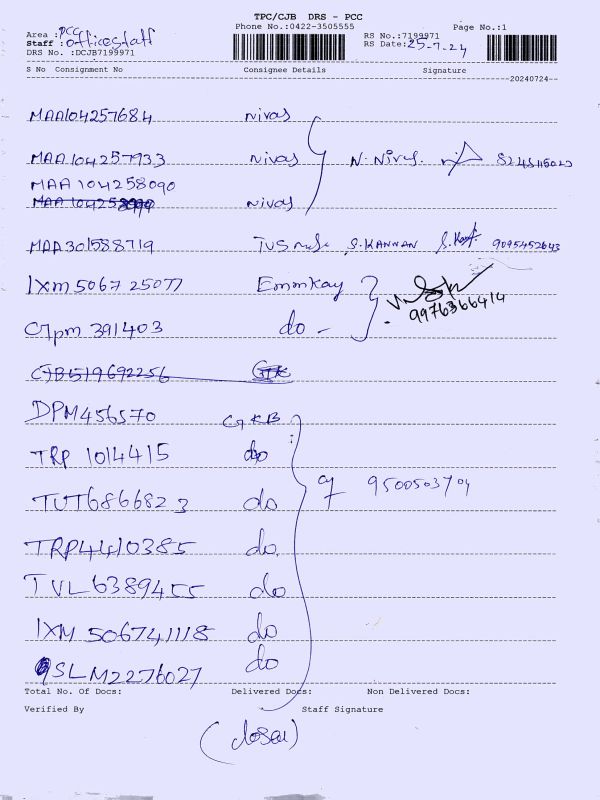 TPC/CJB DRS - PCC
Phone No.:0422-3505555 Page No.:1
Area : PCC RS No.:7199971
Staff : Office staff RS Date: 25-7-24
DRS No. :DCJB7199971
S No Consignment No Consignee Details Signature
20240724
MAA104257684 Nivas
MAA104257933 Nivas N. Nives.
MAA 104258090
Nivas
MAA301588719 TVS S. KANNAN 9095452643
IXM 5067 25077 Emmkay
9976366414
GPM 391403 do -
CJB519692256
DPM456570 GKB
TRP 1014415 do
9500503704
TUT6866823 do
TRP4410385 do
TVL6389455 do
IXM 506741118 do
SLM2276027 do
Total No. Of Docs: Delivered Docs: Non Delivered Docs:
Verified By Staff Signature